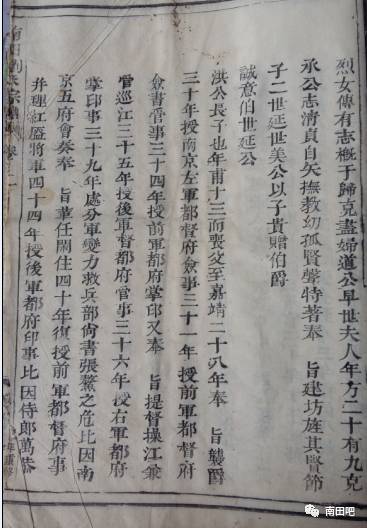 烈女傳有志槪于歸克盡婦道公早世夫人年方二十有九克
承公志清貞自矢撫教幼孤賢聲特著奉 旨建坊旌其賢節
子二世延世美公以子貴贈伯爵
誠意伯世延公
洪公長子也年甫十三而喪父至嘉靖二十八年奉 旨襲爵
三十年授南京左軍都督府僉事三十一年授前軍都督府
僉書管事三十四年授前軍都府掌印又奉 旨提督操江兼
管巡江三十五年授後軍督都府管事三十六年授右軍都府
掌印事三十九年處分軍變力救兵部尚書張鏊之危比因南
京五府會奏奉 旨革任閑住四十年復授前軍都督府事
幷理紅盔將軍四十四年授後軍都府印事比因侍郎萬恭
南田劉氏宗譜 卷二
南田吧